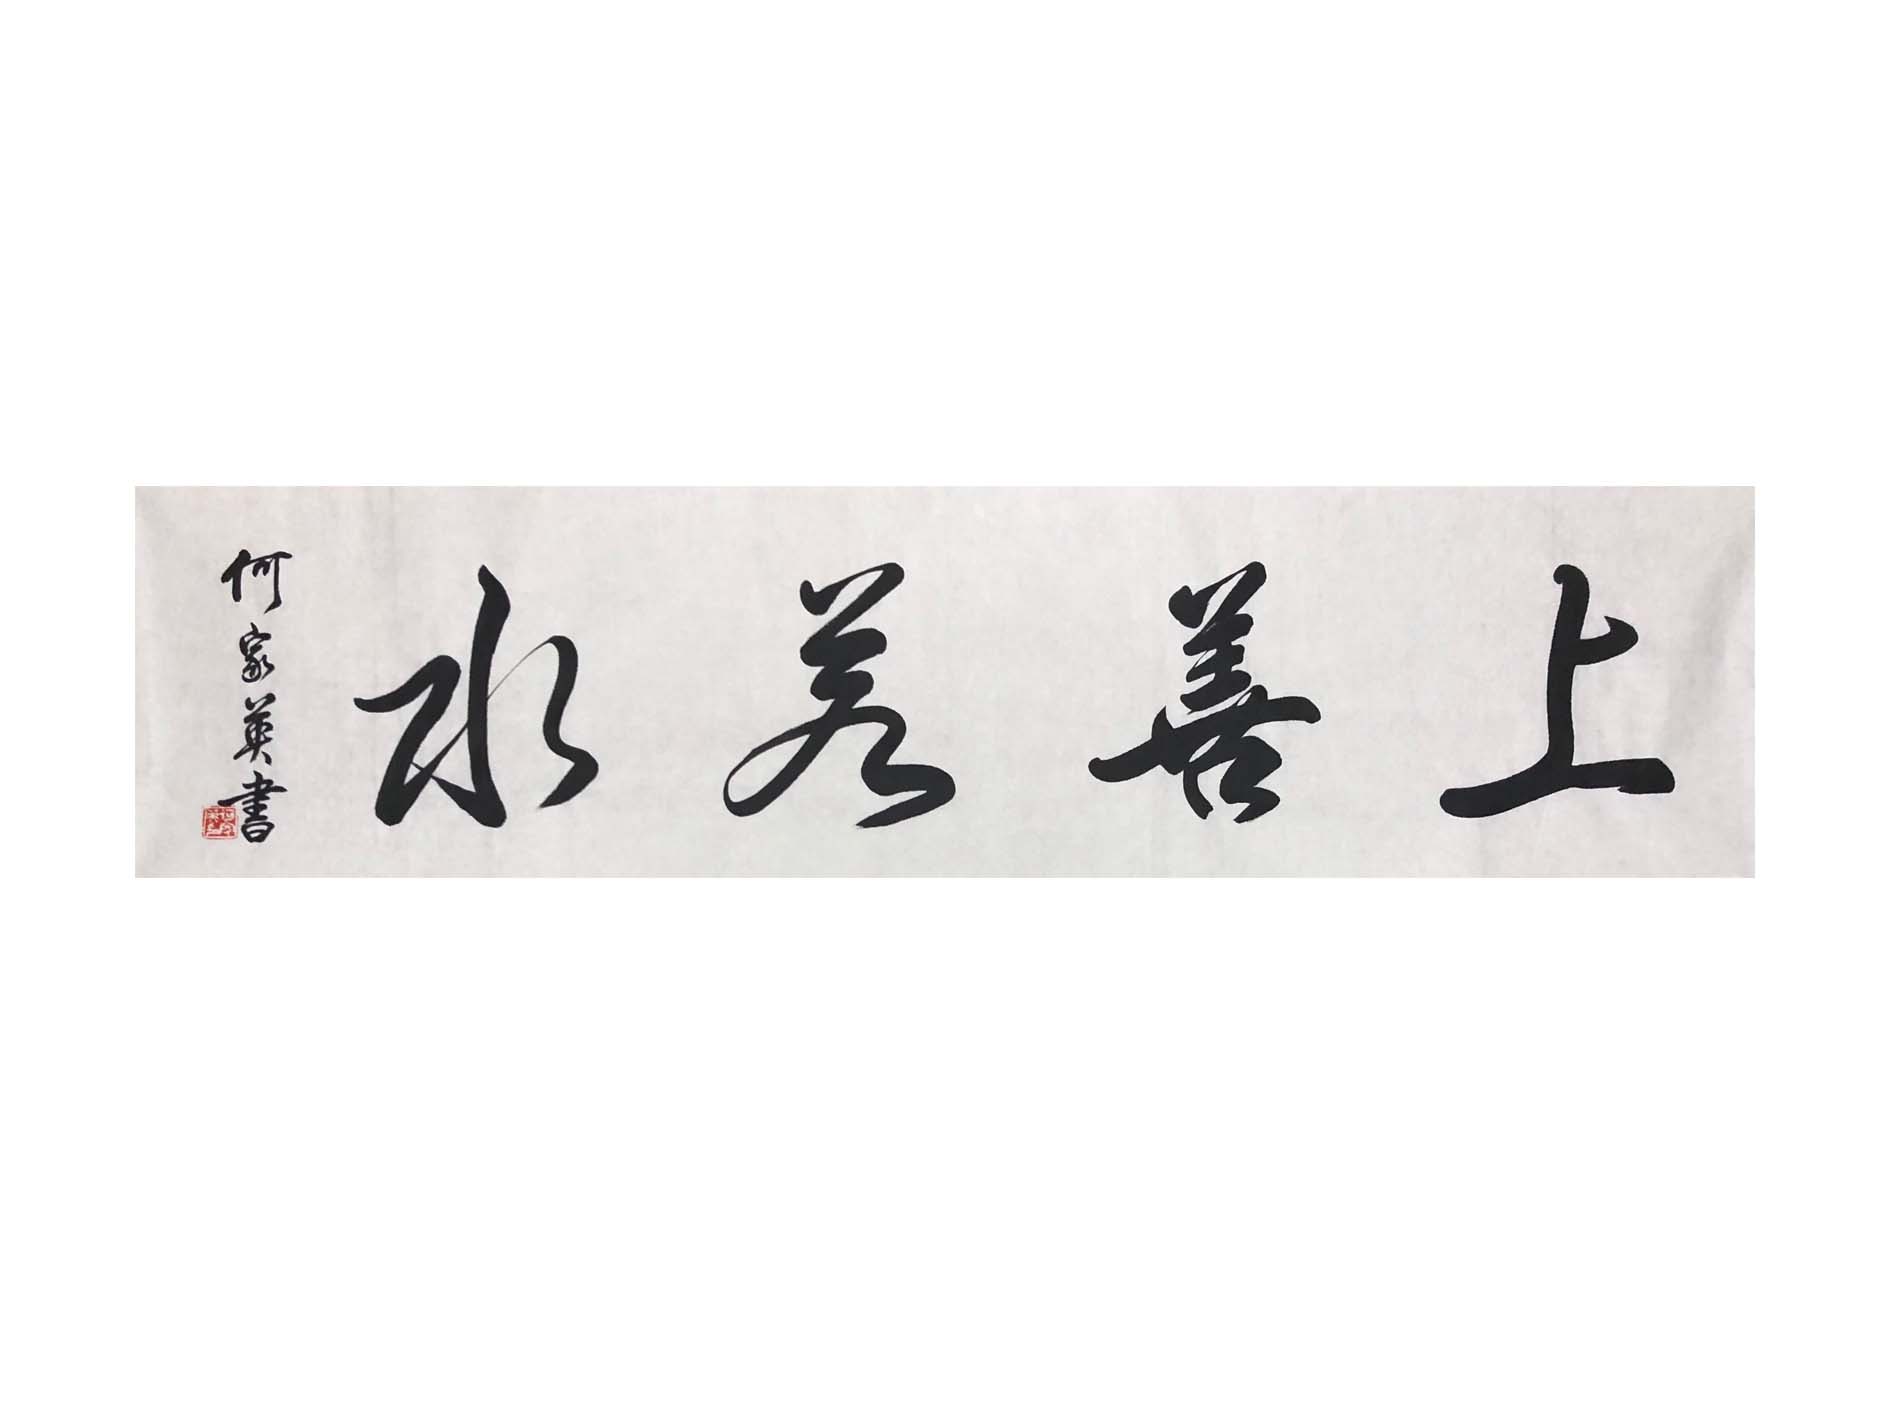 上善若水
何家英書